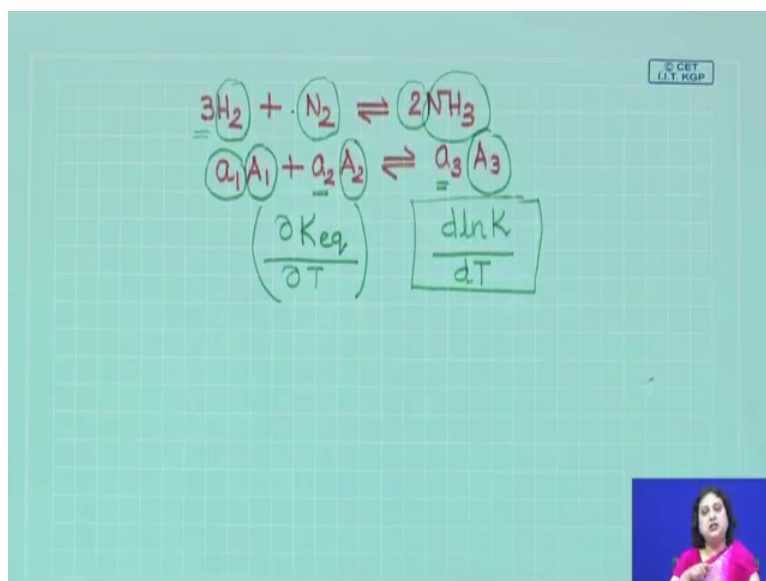 © CET
I.I.T. KGP
3H₂ + N₂ ⇌ 2NH₃
a₁A₁ + a₂A₂ ⇌ a₃A₃
(∂Keq/∂T) dlnK/dT